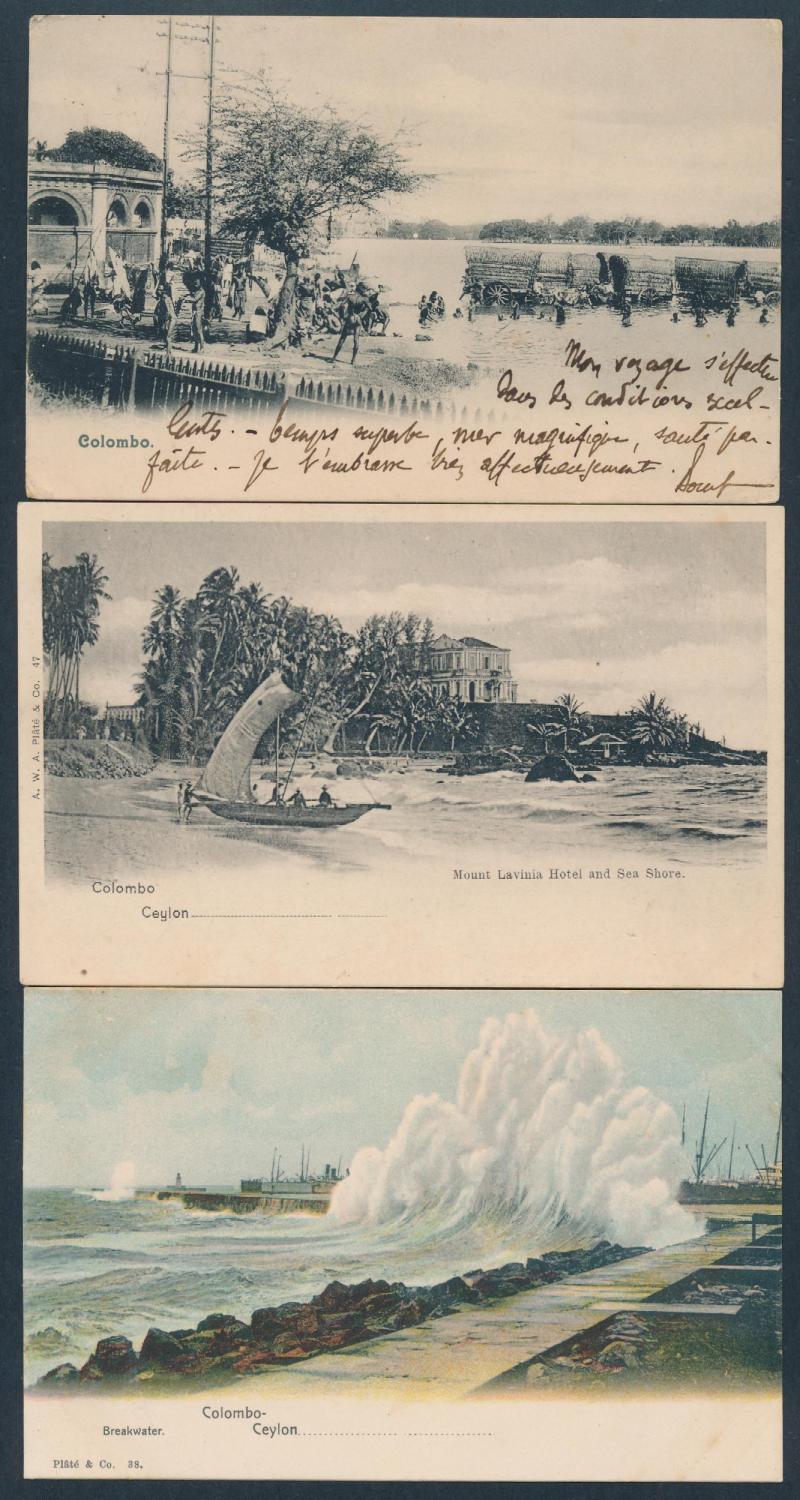 Mon voyage s'effectue
dans des conditions excel-
Colombo.
lentes. - temps superbe, mer magnifique, santé par-
faite. - Je t'embrasse bien affectueusement.
A. W. A. Plâté & Co. 47
Mount Lavinia Hotel and Sea Shore.
Colombo
Ceylon
Colombo-
Breakwater. Ceylon
Plâté & Co. 38.